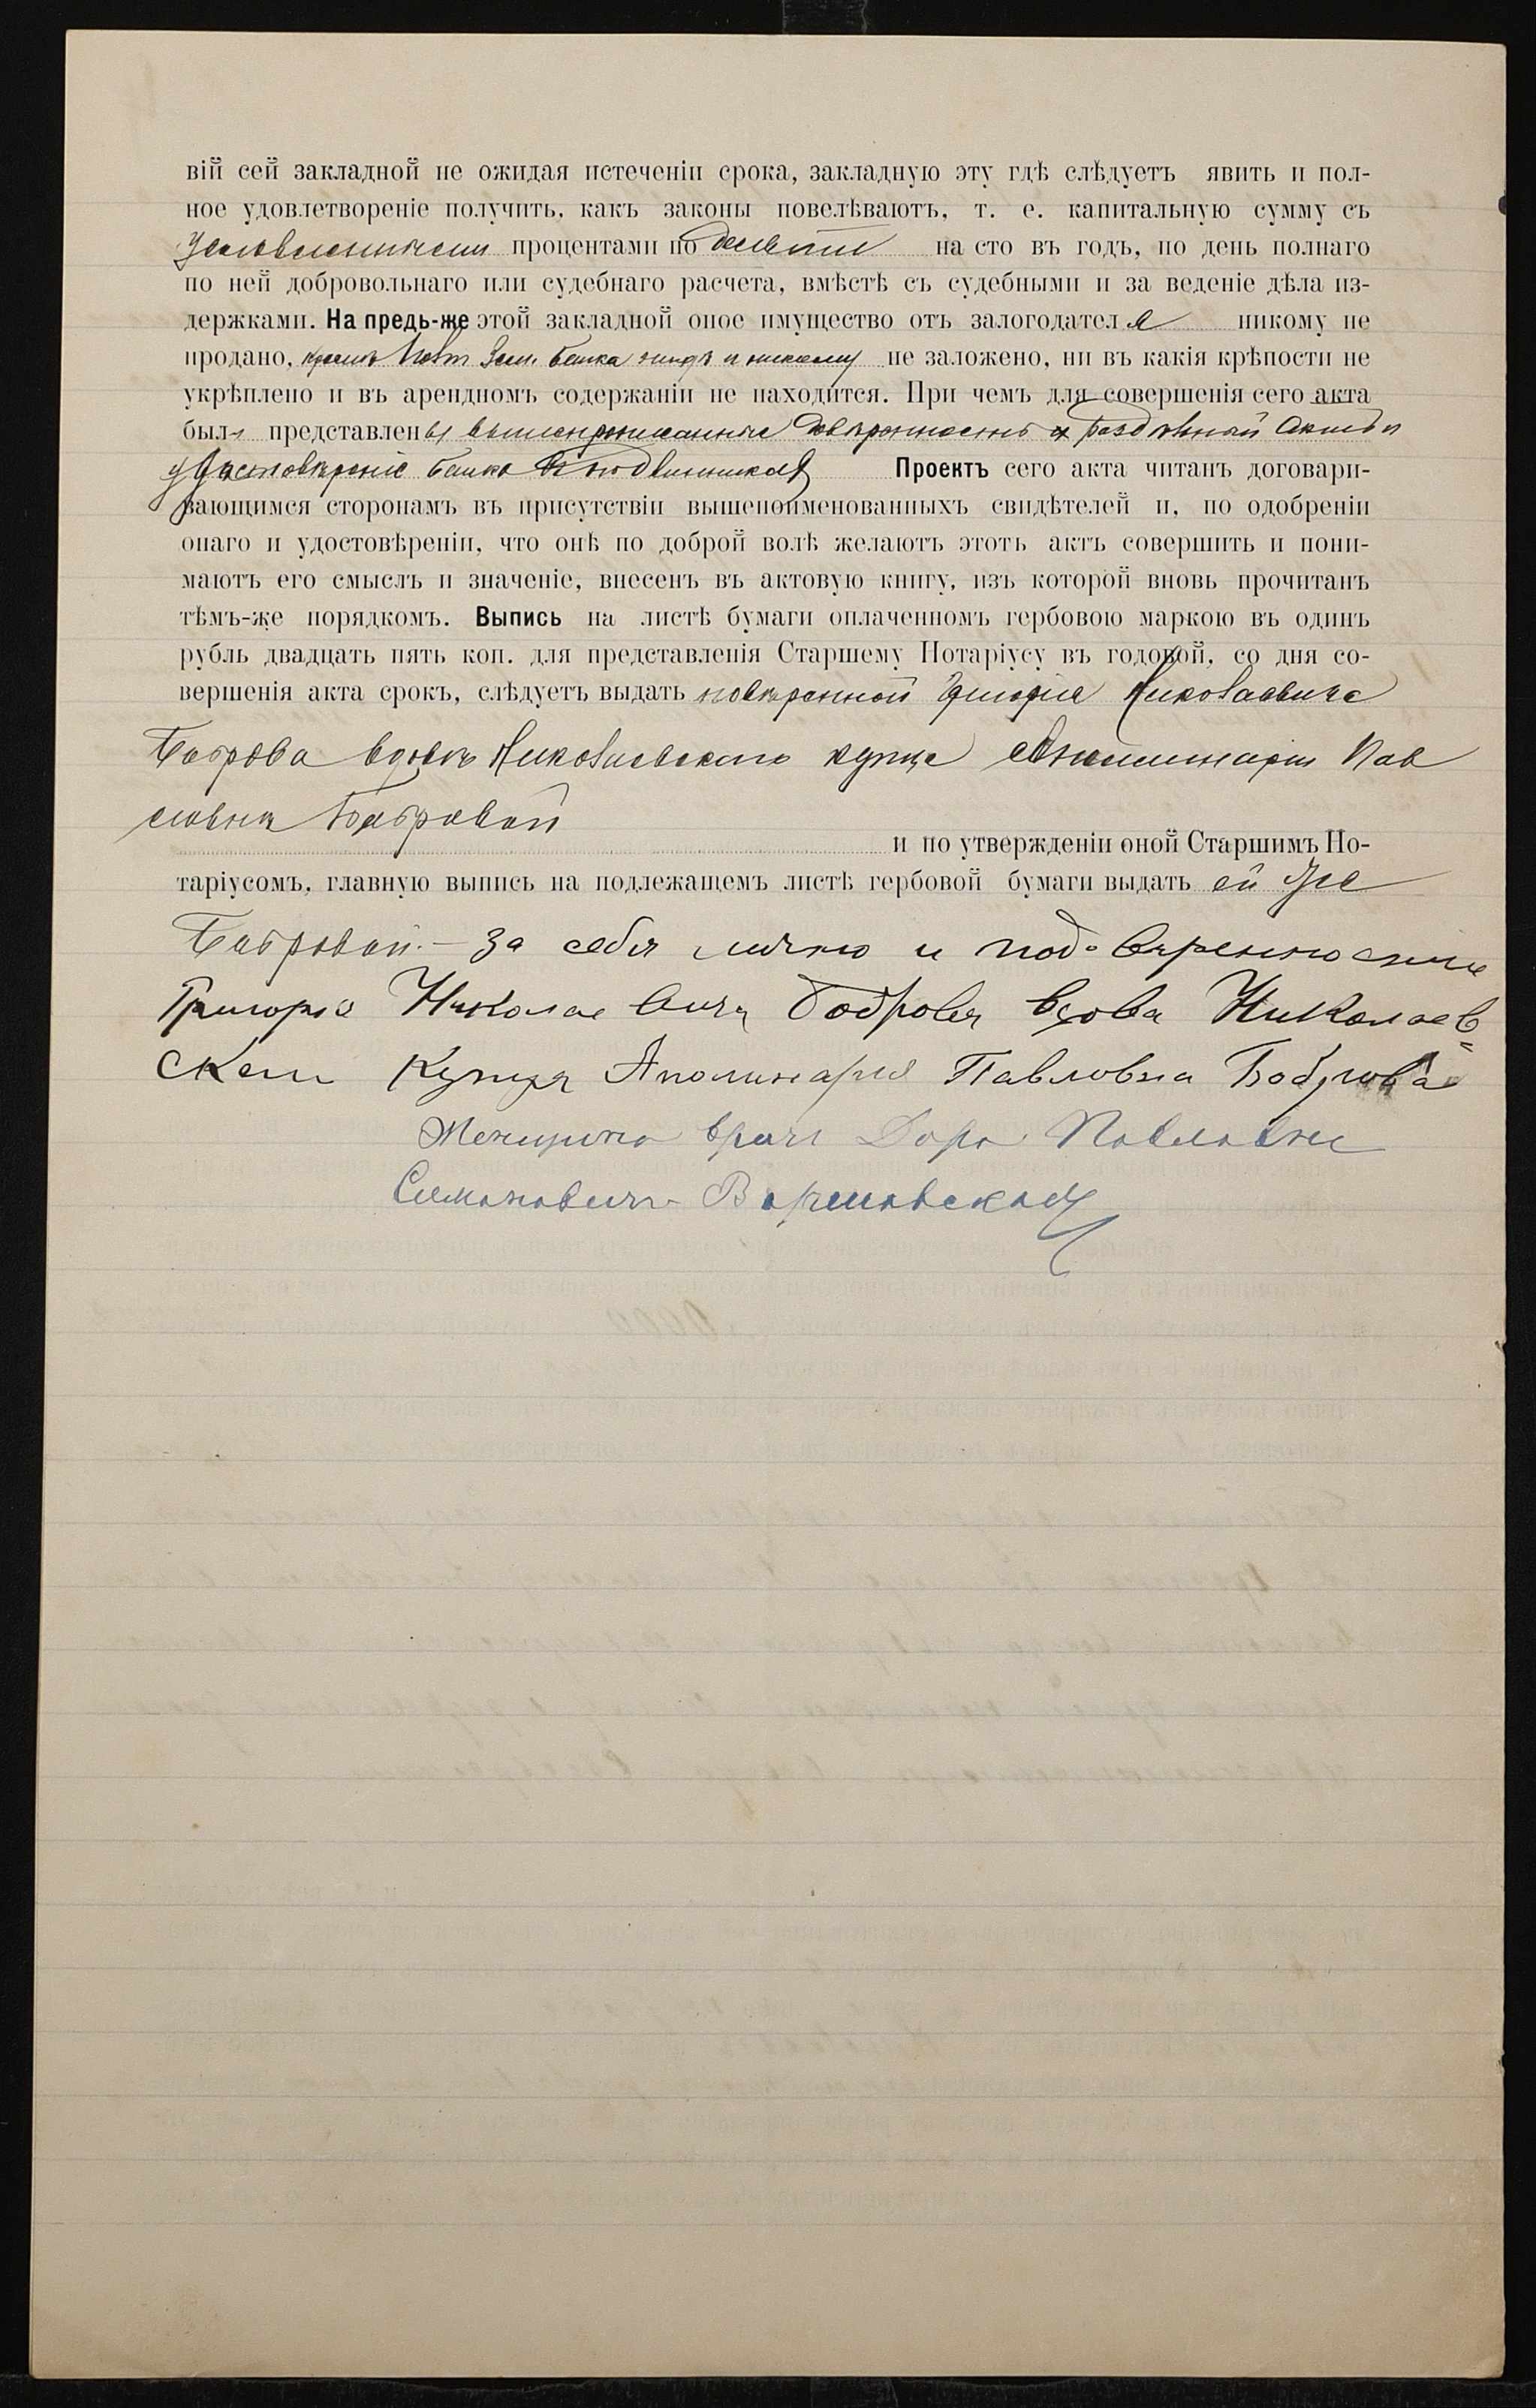 вій сей закладной не ожидая истеченіи срока, закладную эту гдѣ слѣдуетъ явить и пол-
ное удовлетвореніе получить, какъ законы повелѣваютъ, т. е. капитальную сумму съ
условленными процентами по девяти на сто въ годъ, по день полнаго
по ней добровольнаго или судебнаго расчета, вмѣстѣ съ судебными и за веденіе дѣла из-
держками. На предь-же этой закладной оное имущество отъ залогодателя никому не
продано, кромѣ Зем. Банка нигдѣ и никому не заложено, ни въ какія крѣпости не
укрѣплено и въ арендномъ содержаніи не находится. При чемъ для совершенія сего акта
были представлены вышепрописанные довѣренность и раздѣльный актъ и
удостовѣреніе банка Проектъ сего акта читанъ договари-
вающимся сторонамъ въ присутствіи вышепоименованныхъ свидѣтелей и, по одобреніи
онаго и удостовѣреніи, что онѣ по доброй волѣ желаютъ этотъ актъ совершить и пони-
маютъ его смыслъ и значеніе, внесенъ въ актовую книгу, изъ которой вновь прочитанъ
тѣмъ-же порядкомъ. Выпись на листѣ бумаги оплаченномъ гербовою маркою въ одинъ
рубль двадцать пять коп. для представленія Старшему Нотаріусу въ годовой, со дня со-
вершенія акта срокъ, слѣдуетъ выдать повѣренной Григорія Николаевича
Боброва вдовѣ Николаевскаго купца Аполлинаріи Пав
ловнѣ Бобровой
и по утвержденіи оной Старшимъ Но-
таріусомъ, главную выпись на подлежащемъ листѣ гербовой бумаги выдать ей же
Бобровой.— За себя лично и по довѣренности
Григорія Николаевича Боброва вдова Николаев=
скаго Купца Аполинарія Павловна Боброва
Женщина врачъ Дора Павловна
Симоновичъ-Варшавская